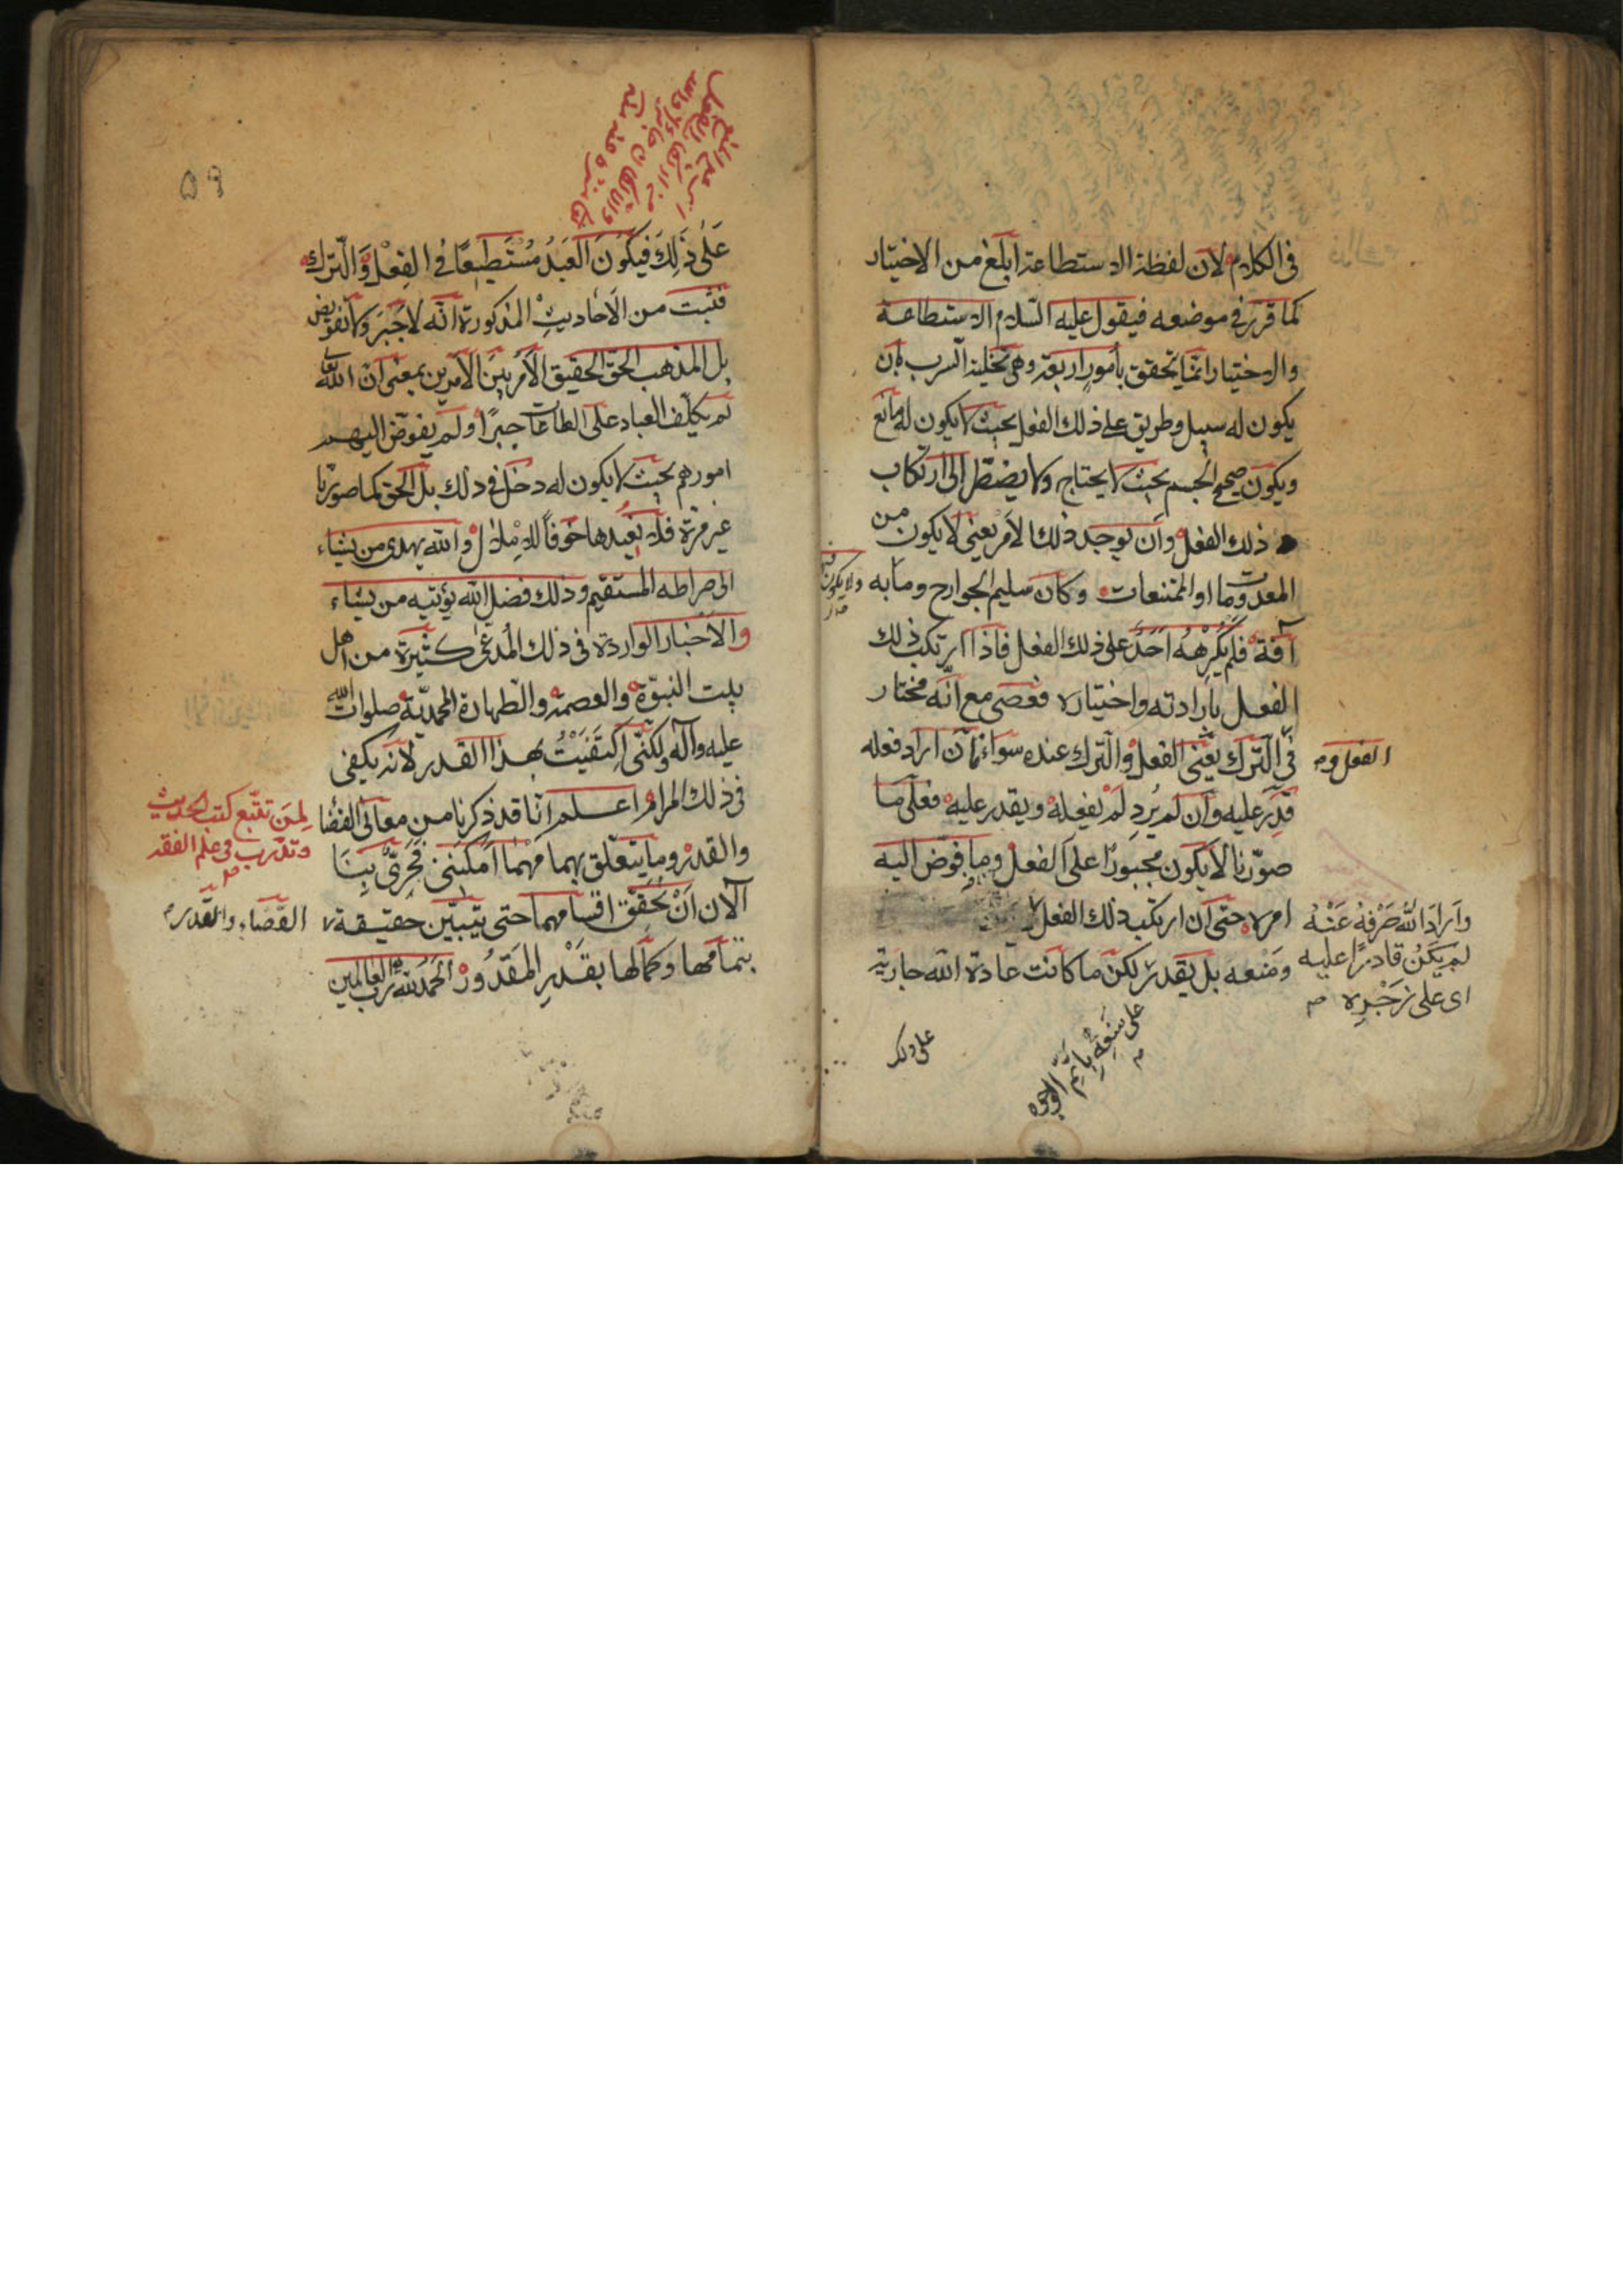 في الكلام لان لفظة الاستطاعة ابلغ من الاختيار
كما قرّر في موضعه فيقول عليه السّلام الاستطاعة
والاختيار انّما يتحقق بأمورٍ اربعة وهى تخلية السرب بان
يكون له سبيل وطريق على ذلك الفعل بحيث لا يكون له مانع
ويكون صحيح الجسم بحيث لا يحتاج ولا يضطّر الى ارتكاب
ذلك الفعل وان يوجد ذلك الأمر يعنى لا يكون من
المعدومات او الممتنعات وكان سليم الجوارح وما به
ولا يكون فيه
آفة فلم يُكْرِهْهُ اَحَدٌ على ذلك الفعل فاذا ارتكب ذلك
الفعل بإرادته واختياره فعصى مع انّه مختار
في الترك يعنى الفعل والترك عنده سواء فان اراد فعله
الفعل و م
قَدِرَ عليه وان لم يُرِد لم يفعله ويقدر عليه فعلى ما
صوّرنا لا يكون مجبورًا على الفعل وما فوّض اليه
امره حتى ان ارتكب ذلك الفعل
وَاَرادَ اللّهُ صَرْفَهُ عَنْهُ
لم يَكُنْ قادرًا عليه
اى على زَجْرِهِ م
ومَنْعه بل يقدر لكن ما كانت عادة الله جارية
على مَنْعِهِ بِاَتَمِّ الوجوه
م
على ذلك
٥٩
عَلى ذلِكَ فيَكُونَ العَبْدُ مُسْتَطيعًا في الفِعْل وَالتّرك
فثبت من الاَحاديثِ المذكورة انّه لا جَبْرَ ولا تفويض
بل المذهب الحقّ الحقيق الاَمر بَيْنَ الاَمرين بمعنى ان الله تعالى
لم يكلّف العباد على الطاعات جبرًا ولم يفوّض اليهم
امورهم بحيث لا يكون له دخل في ذلك بل الحق كما صوّرنا
غير مرّة فلا نُعيدها خوفاً للاِمْلال والله يهدى من يشاء
الى صراطه المستقيم وذلك فضل الله يؤتيه من يشاء
والاَخبار الواردة في ذلك المُدعى كثيرة من اهل
بيت النبوّة والعصمة والطهارة المحمديّة صلوات الله
عليه وآله ولكنّى اكتَفَيْتُ بهذا القدر لانه يكفى
في ذلك المرام اعلم انّا قد ذكرنا من معانى القضا
لِمَنْ تَتَبّع كتب الحديث
وتدَرّب في علم الفقه
والقدر وما يتعلّق بهما مَهْما اَمكَنَنى فَحَرِىٌّ بِنَا
الآن اَنْ نُحَقِّقَ اقسامهما حتى يتبيّن حقيقة
القضاء والقدر م
بتمامها وكمالها بقَدْرِ المَقْدُور الحَمْدُ للّه ربّ العالمين